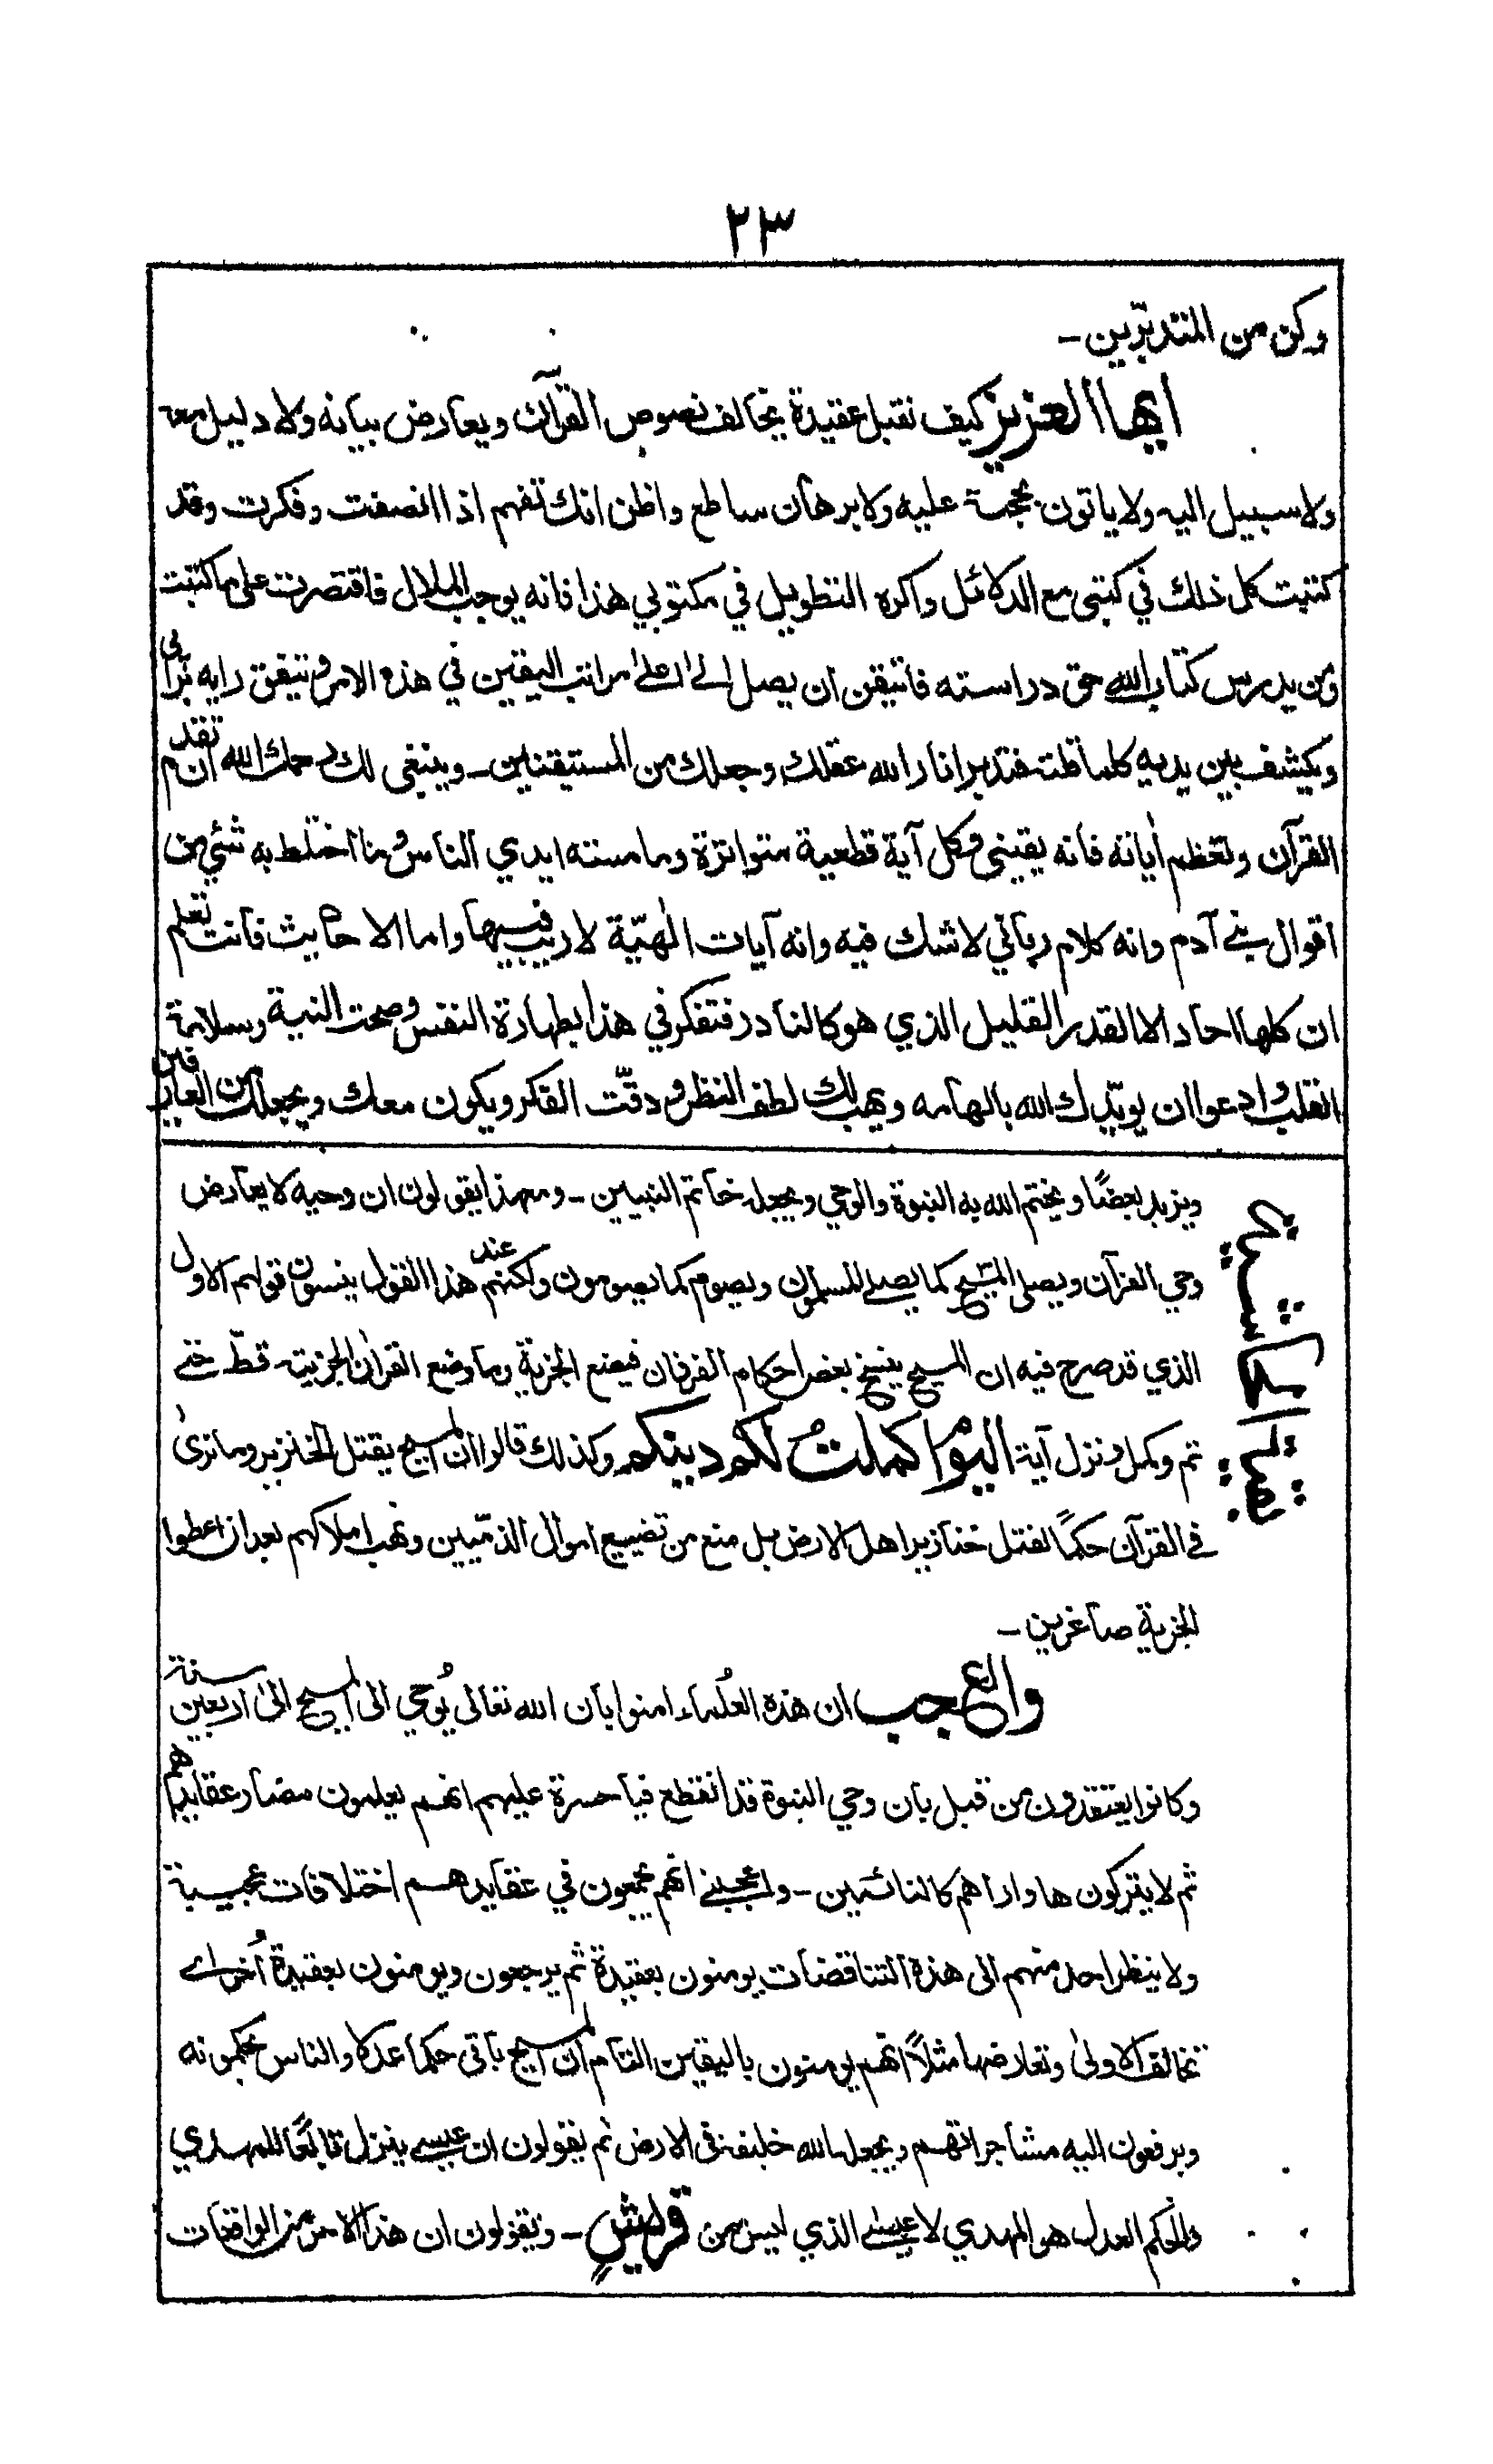 ٢٣
وكن من المتدبّرين ـ
ايها العزيز كيف نقبل عقيدة يخالف نصوص القرآن ويعارض بيانه ولا دليل معه
ولا سبيل اليه ولا ياتون بحجة عليه ولا برهان ساطع واظن انك تفهم اذا انصفت وفكرت وقد
كتبت كل ذلك في كتبى مع الدلائل واكره التطويل في مكتوبي هذا فانه يوجب الملال فاقتصرت على ما كتبت
ومن يدرس كتاب الله حق دراسته فاتيقن ان يصل الى اعلى مراتب اليقين في هذه الامر ويتيقق رايه برأيى
ويكشف بين يديه كلما قلت فتدبر انار الله عقلك وجعلك من المستيقنين ـ وينبغى لك رحمك الله ان تقدم
القرآن وتعظم اٰياته فانه يقينى وكل آية قطعية متواترة وما مسته ايدي الناس وما اختلط به شئي من
اقوال بنے آدم وانه كلام رباني لا شك فيه وانه آيات الٰهيّة لا ريب فيها واما الاحاديث فانت تعلم
ان كلها احاد الا القدر القليل الذي هو كالنادر فتفكر في هذا بطهارة النفس وصحت النية وسلامة
القلب وادعوا ان يويّدك الله بالهامه ويهب لك لطف النظر ودقّت الفكر ويكون معك ويجعلك من العارفين
ويزيد بعضًا ويختم الله به النبوة والوحي ويجعله خاتم النبيين ـ ومع هذا يقولون ان وحيه لا يعارض
وحي القرآن ويصلى المسيح كما يصلے المسلمون ويصوم كما يصومون ولكنهم عند هذا القول ينسون قولهم الاول
الذي قد صرح فيه ان المسيح ينسخ بعض احكام الفرقان فيضع الجزية وما وضع القراٰن الجزية قطّ حتے
تم وكمل ونزل آية اليوم اكملت لكم دينكم وكذلك قالوا ان المسيح يقتل الخنزير وما نرىٰ
فے القرآن حكمًا لقتل خنازير اهل الارض بل منع من تضييع اموال الذمّيين ونهب املاكهم بعد ان اعطوا
الجزية صاغرين ـ
والعجب ان هذه العُلماء امنوا بان الله تعالى يُوحي الى المسيح الىٰ اربعين سنة
وكانوا يعتقدون من قبل بان وحي النبوة قد انقطع فيا حسرة عليهم انهم يعلمون مضار عقايدهم
ثم لا يتركون ها واراهم كالنائمين ـ ولعجبنے انهم يجمعون في عقايدهم اختلافات عجيبة
ولا ينظر احد منهم الى هذه التناقضات يومنون بعقيدة ثم يرجعون ويومنون بعقيدة اُخراے
تخالف الاولىٰ وتعارضها مثلاً انهم يومنون باليقين التام ان المسيح ياتى حكما عدلا والناس يحكمونه
ويرفعون اليه مشاجراتهم ويجعله الله خليفة فى الارض ثم يقولون ان عيسے ينزل تابعًا للمهدي
والحكم العدل هو المهدي لا عيسے الذي ليس من قريشٍ ـ ويقولون ان هذا الامر من الواقعات